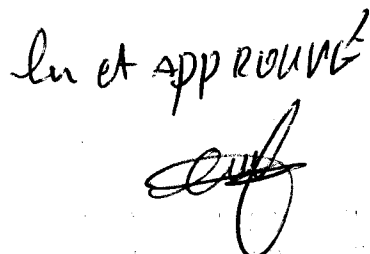 lu et APPROUVÉ